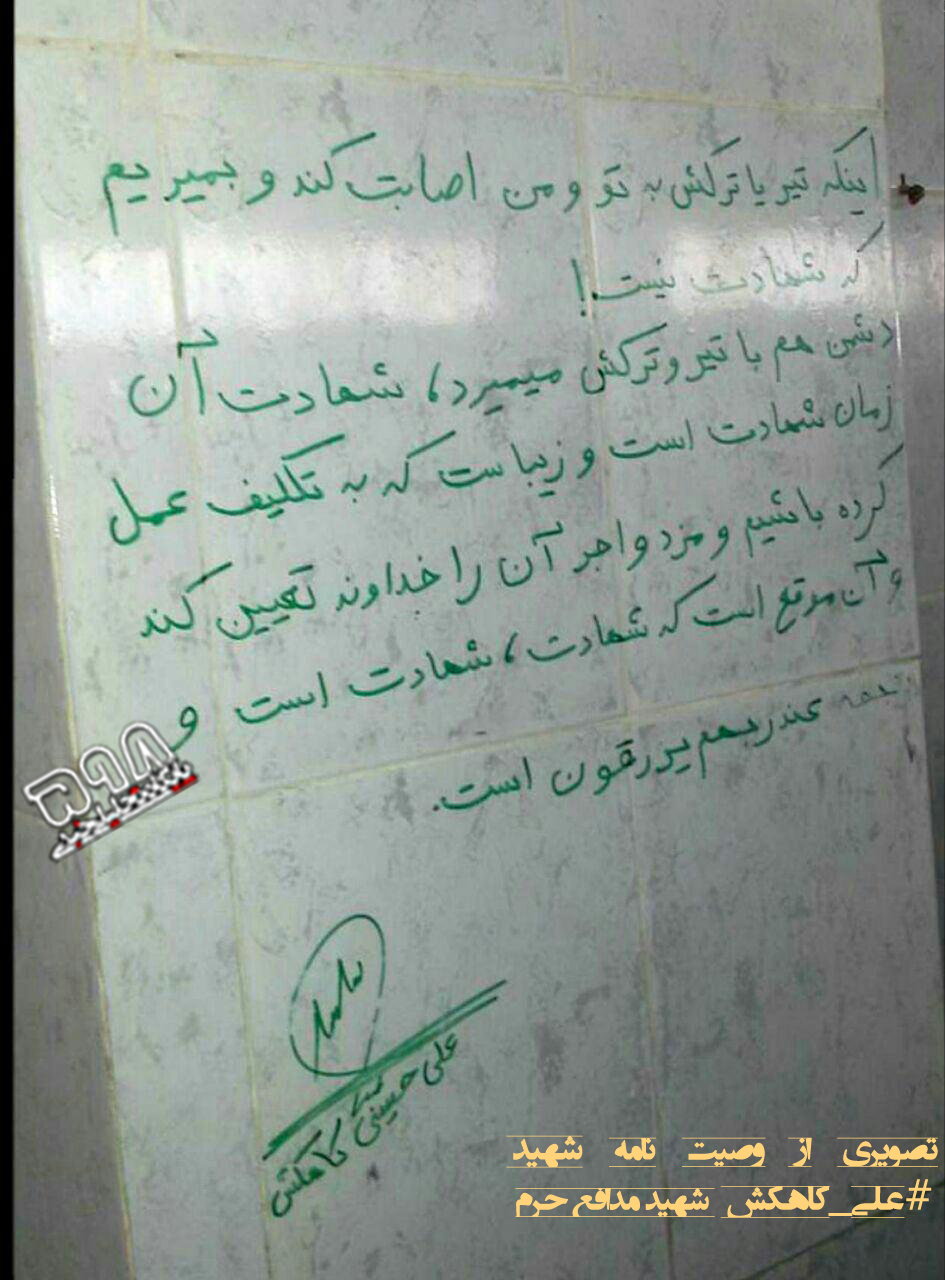 اینکه تیر یا ترکش به تو و من اصابت کند و بمیریم
که شهادت نیست!
دشمن هم با تیر و ترکش میمیرد، شهادت آن
زمان شهادت است و زیباست که به تکلیف عمل
کرده باشیم و مزد و اجر آن را خداوند تعیین کند
و آن موقع است که شهادت، شهادت است و
عند ربهم یرزقون است.
علی حسینی کاهکش
۵۹۸
تصویری از وصیت نامه شهید
#علی_کاهکش شهید مدافع حرم